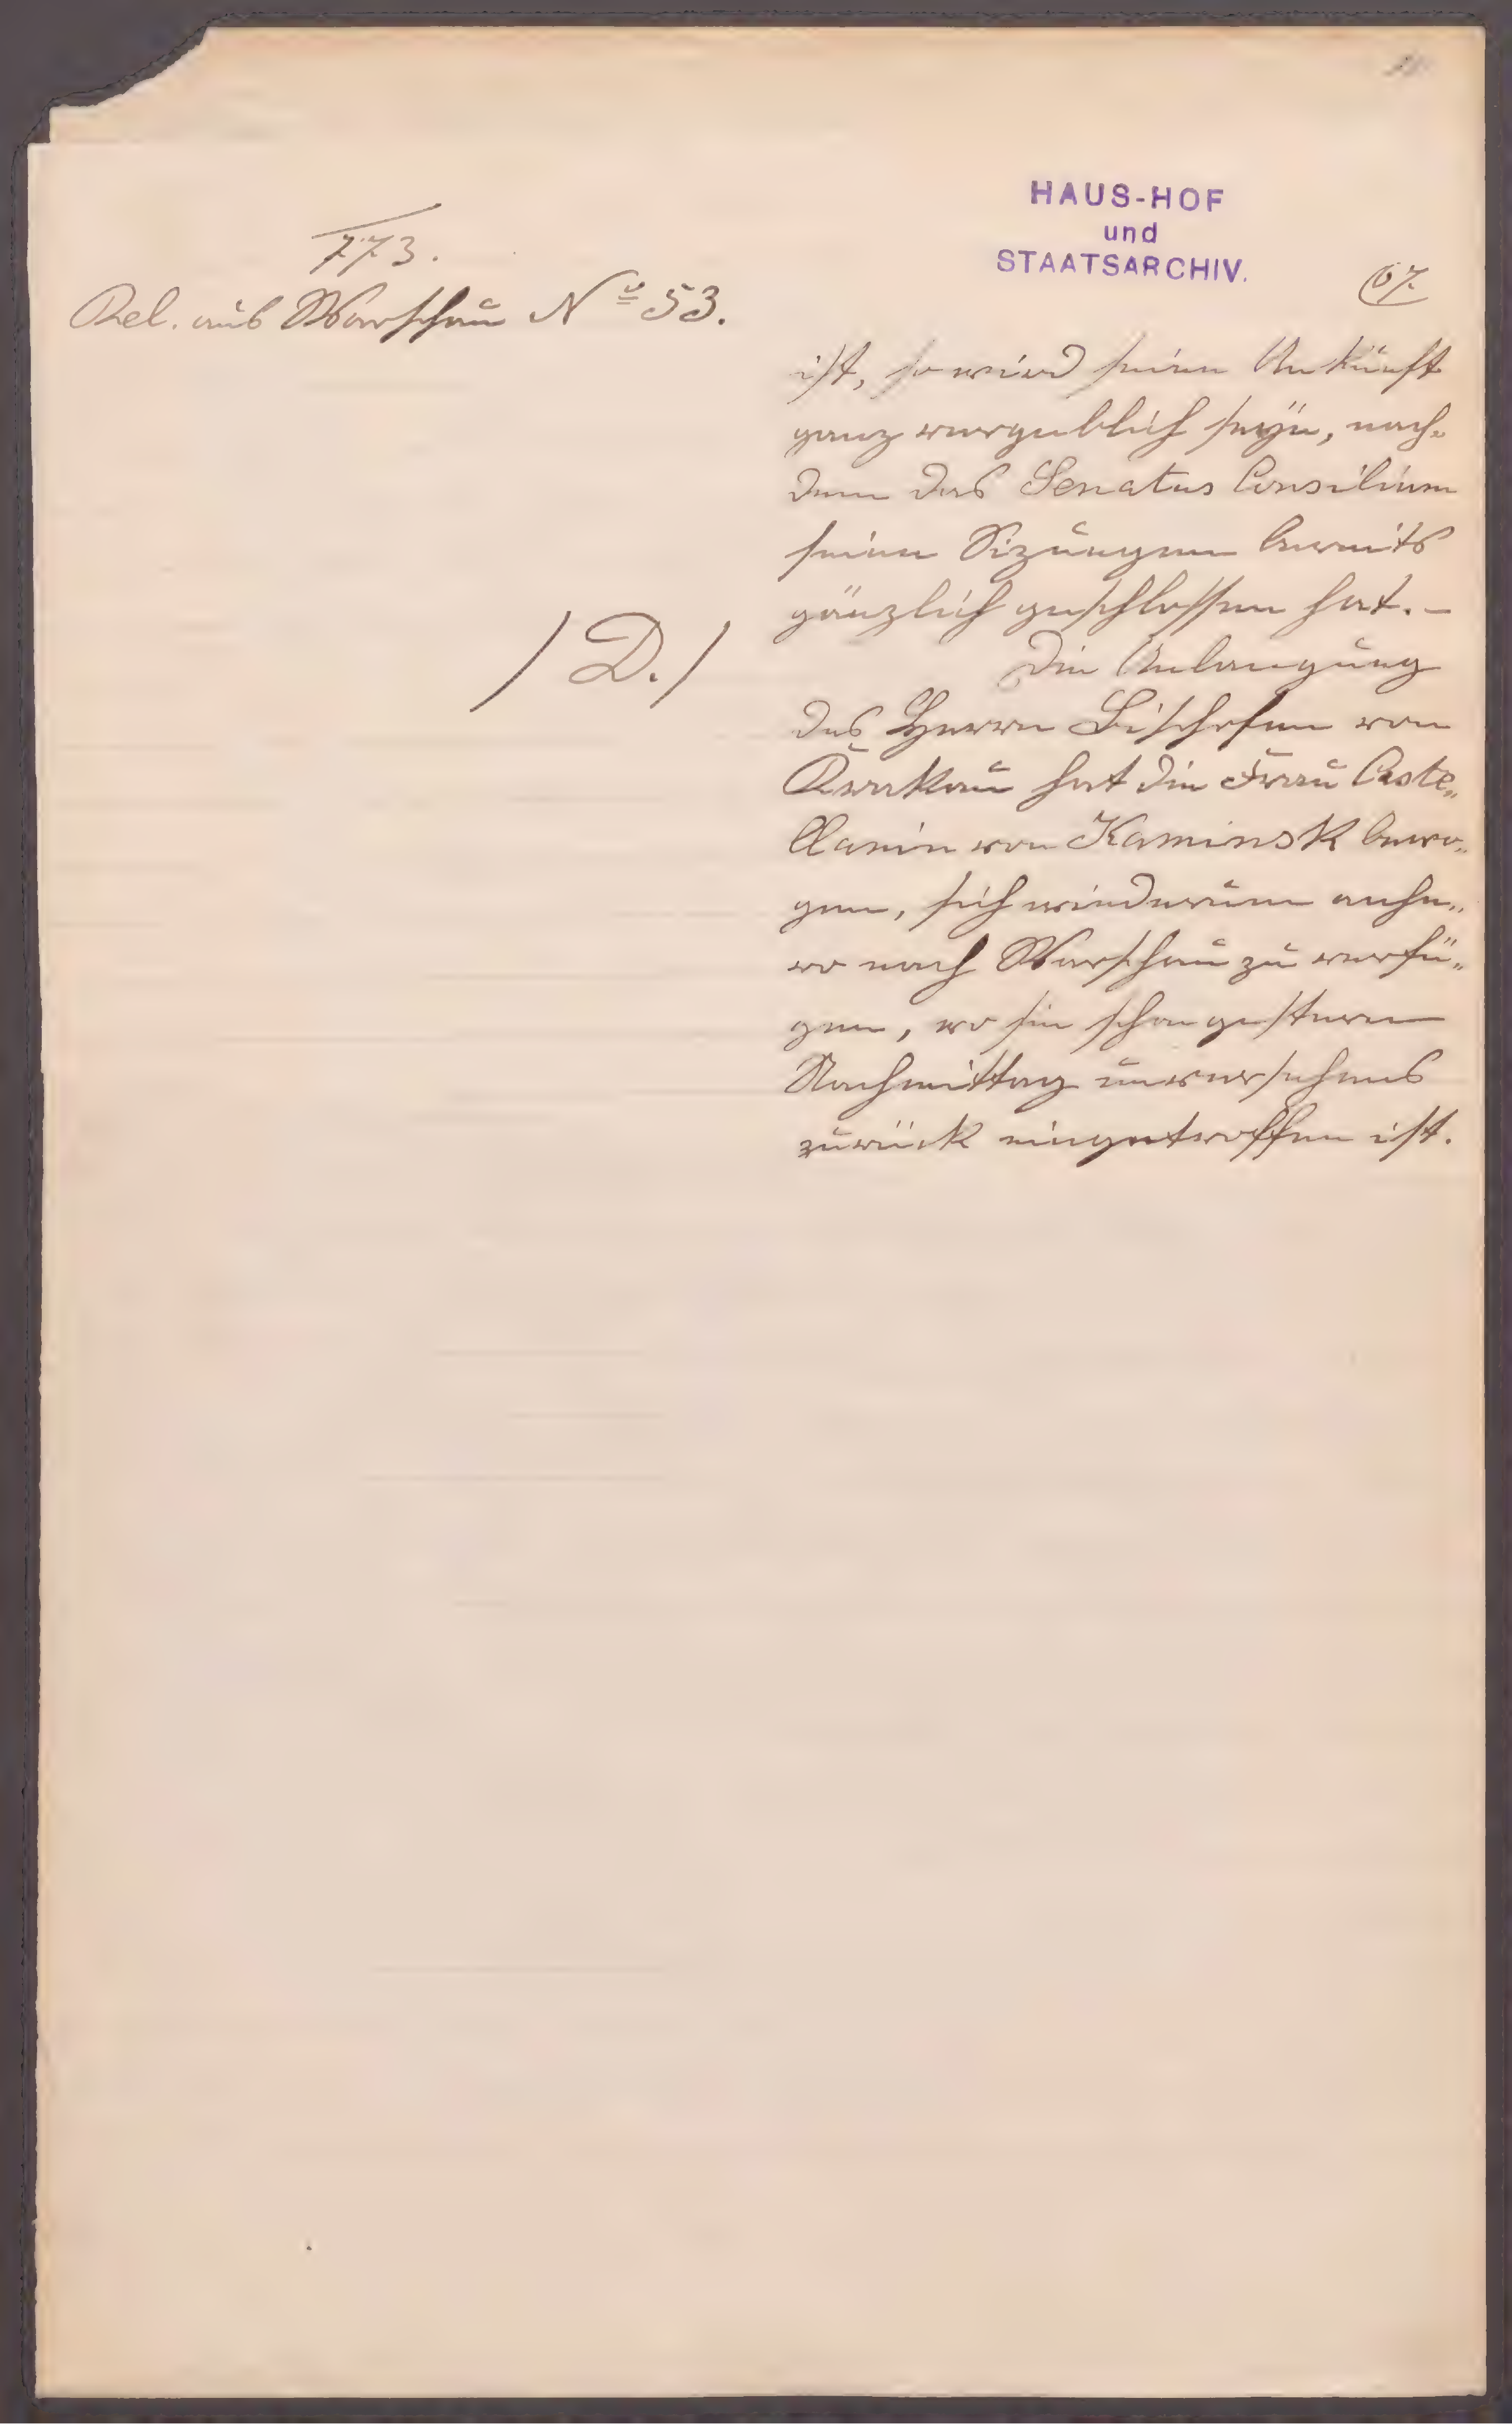 HAUS-HOF
und
STAATSARCHIV.
773.
Rel. aus Warschau No 53.
67.
ist, so wird seine Ankunft
ganz vergeblich seyn, nach„
dem das Senatus Consilium
seine Sizungen bereits
gänzlich geschlossen hat. –
/ D. /
Die Anlangung
des Herrn Bischofen von
Krakau hat die Frau Caste„
llanin von Kaminsk bewo„
gen, sich wiederum anhe„
ro nach Warschau zu verfü„
gen, wo sie schon gestern
Nachmittag unversehens
zurück eingetroffen ist.